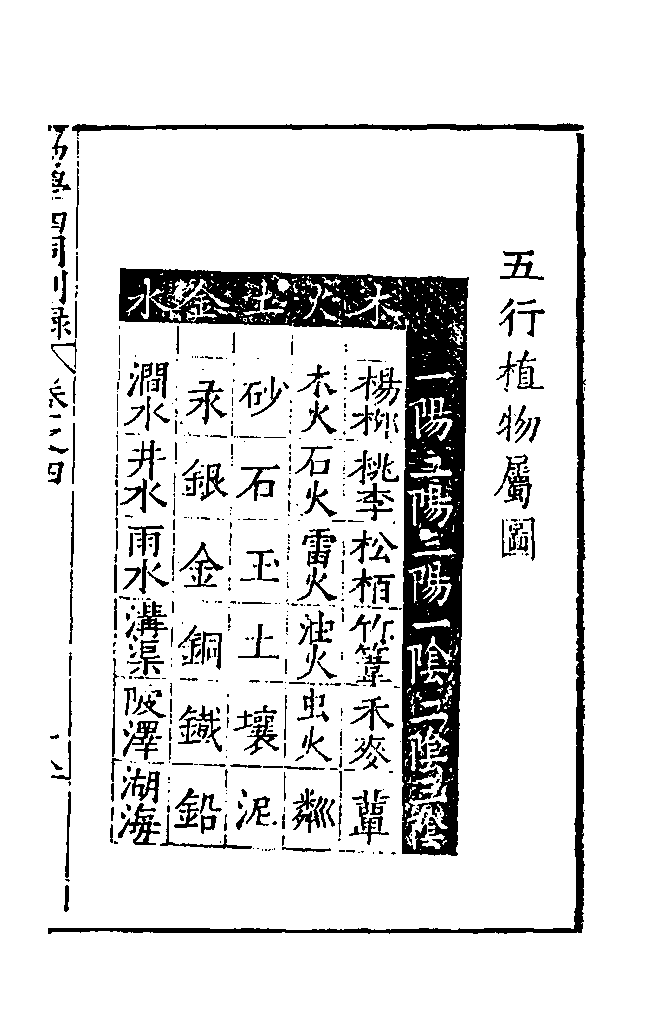 五行植物屬圖
一陽二陽三陽一陰二陰三陰
木 楊柳 桃李 松栢 竹葦 禾麥 蕈
火 木火 石火 雷火 油火 虫火 粼
土 砂 石 玉 土 壤 泥
金 汞 銀 金 銅 鐵 鉛
水 澗水 井水 雨水 溝渠 陂澤 湖海
卷之四